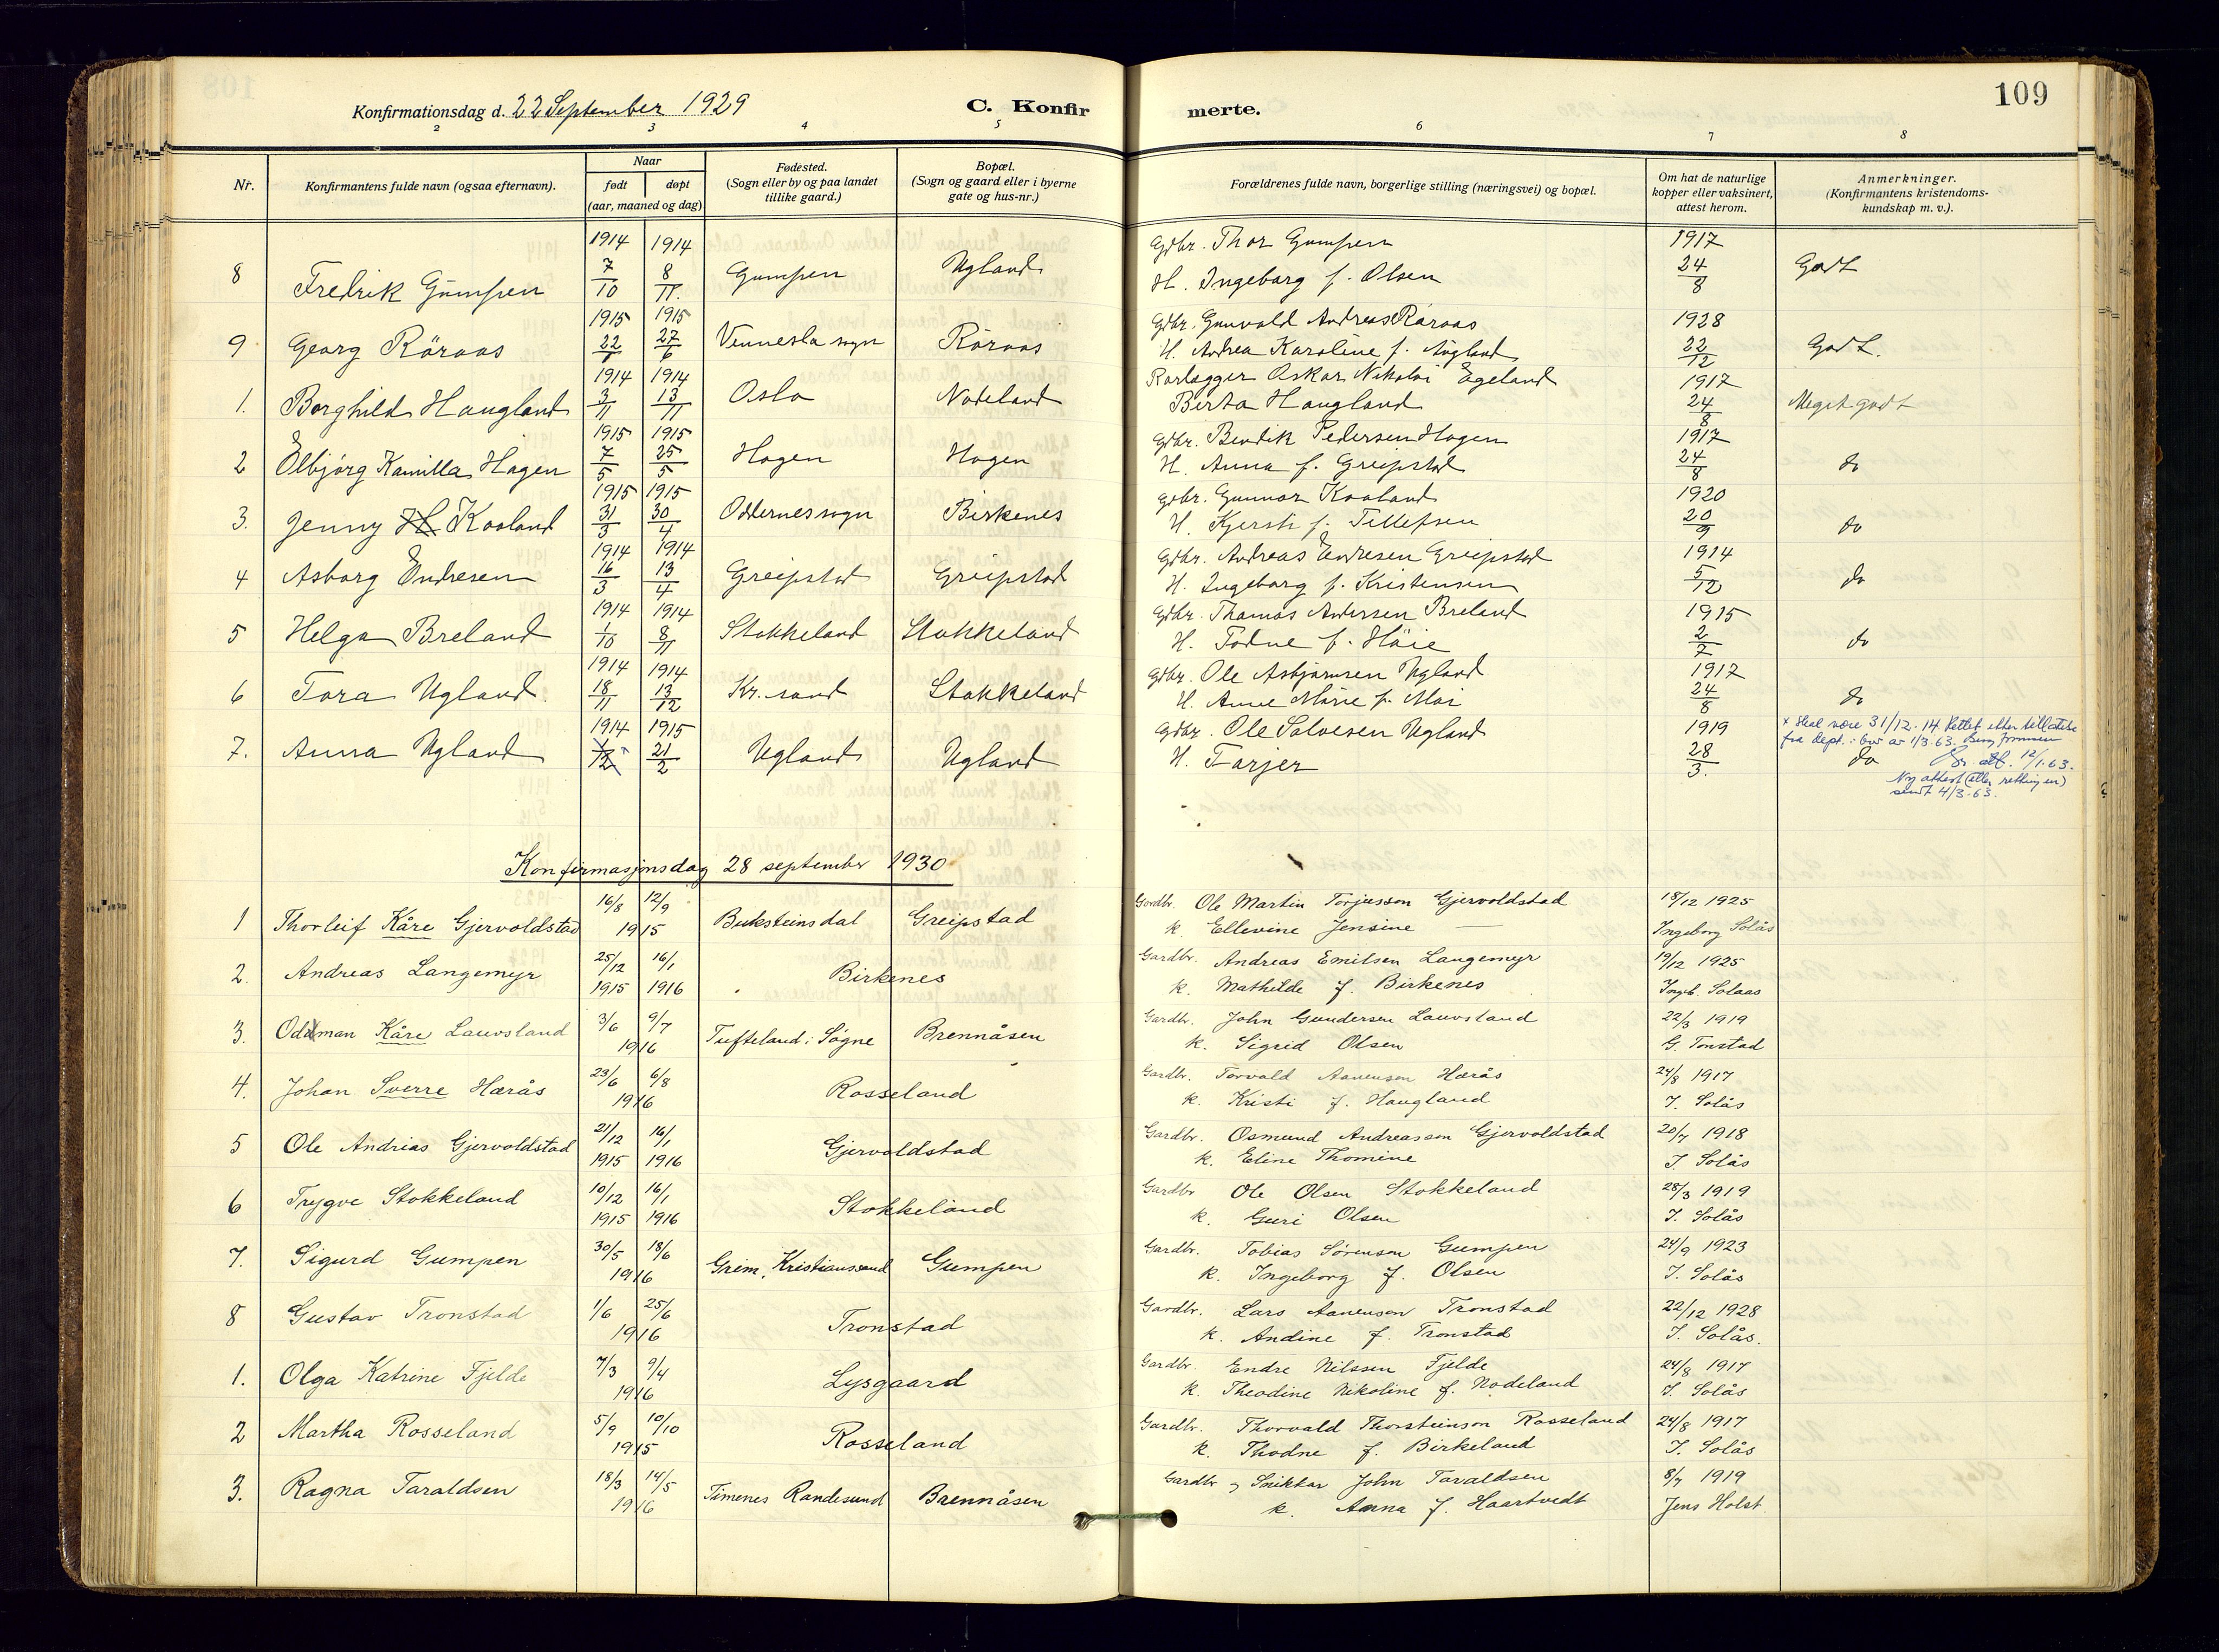 109
Konfirmationsdag d. 22 September 1929
C. Konfirmerte.
2 3 4 5 6 7 8
Nr. Konfirmantens fulde navn (ogsaa efternavn). Naar født døpt (aar, maaned og dag) Fødested. (Sogn eller by og paa landet tillike gaard.) Bopæl. (Sogn og gaard eller i byerne gate og hus-nr.) Forældrenes fulde navn, borgerlige stilling (næringsvei) og bopæl. Om hat de naturlige kopper eller vaksinert, attest herom. Anmerkninger. (Konfirmantens kristendomskundskap m. v.).
1914 1914 Gdbr. Thor Gumpen 1917
8 Fredrik Gumpen 7/10 8/11. Gumpen Ugland H. Ingeborg f. Olsen 24/8 Godt
1915 1915 Gdbr. Gunvald Andreas Röraas 1928
9 Georg Röraas 22/ 27/6 Vennesla sogn Röraas H. Andrea Karoline f. 22/12 Godt.
1914 1914 Rørlægger Oskar Nikolai Egeland 1917
1. Borghild Haugland 3/11 13/11 Oslo Nodeland Berta Haugland 24/8 Meget godt
1915 1915 Gdbr. Bendik Pedersen Hagen 1917
2 Elbjørg Kamilla Hagen 7/5 25/5 Hagen Hagen H. Anna f. Greipstad 24/8 do
1915 1915 Gdbr. Gunnar Kooland 1920
3. Jenny H Kooland 31/3 30/4 Oddernes sogn Birkenes H. Kjersti f. Tellefsen 20/9 do
1914 1914 Gdbr. Andreas Endresen Greipstad 1914
4 Asborg Endresen 16/3 13/4 Greipstad Greipstad H. Ingeborg f. Kristensen 5/12 do
1914 1914 Gdbr. Thomas Andersen Breland 1915
5 Helga Breland 1/10 8/11 Stokkeland Stokkeland H. Todne f. Höie 2/7 do
1914 1914 Gdbr. Ole Asbjørnsen Ugland 1917
6 Tora Ugland 18/11 13/12 Kr.sand Stokkeland H. Anne Marie f. Moi 24/8 do
1914 1915 Gdbr. Ole Salvesen Ugland 1919 x skal være 31/12-14. Rettet etter tillatelse
7. Anna Ugland 21/2 Ugland Ugland H. Tarjer 28/3. do
fra dept. i brev av 1/3.63.
12/1.63.
Ny attest (etter rettingen)
sendt 4/3-63.
Konfirmasjonsdag 28 september 1930
1 Thorleif Kåre Gjervoldstad 16/8 12/9 1915 Buksteinsdal Greipstad Gardbr. Ole Martin Torjusson Gjervoldstad 18/12 1925
k. Ellevine Jensine — Ingeborg Solås
2. Andreas Langemyr 25/12 1915 16/1 1916 Birkenes Gardbr. Andreas Emilsen Langemyr 19/12 1925
k. Mathilde f. Birkenes Ingeb. Solaas
3. Oddman Kåre Lauvsland 3/6 9/7 1916 Tufteland i Søgne Brennåsen Gardbr. John Gundersen Lauvsland 22/3 1919
k. Sigrid Olsen G. Tonstad
4. Johan Sverre Hærås 23/6 6/8 1916 Rosseland Gardbr. Torvald Aanenson Hærås 24/8 1917
k. Kristi f. Haugland I. Solås
5 Ole Andreas Gjervoldstad 21/12 1915 16/1 1916 Gjervoldstad Gardbr. Osmund Andreasson Gjervoldstad 20/7 1918
k. Eline Thomine I. Solås
6 Trygve Stokkeland 10/12 1915 16/1 1916 Stokkeland Gardbr Ole Olsen Stokkeland 28/3 1919
k. Guri Olsen I. Solås
7. Sigurd Gumpen 30/5 18/6 1916 Grim, Kristianssand Gumpen Gardbr. Tobias Sørenson Gumpen 24/9 1923
k. Ingeborg f. Olsen I. Solås
8 Gustav Tronstad 1/6 25/6 1916 Tronstad Gardbr. Lars Aanenson Tronstad 22/12 1928
k. Andine f. Tronstad I. Solås.
1. Olga Katrine Fjelde 7/3 9/4 1916 Lysgaard Gardbr. Endre Nilssen Fjelde 24/8 1917
k. Theodine Nikoline f. Nodeland I. Solås
2 Martha Rosseland 5/9 10/10 1915 Rosseland Gardbr. Thorvald Thorsteinson Rosseland 24/8 1917
k. Thodne f. Birkeland I. Solås
3. Ragna Taraldsen 18/3 14/5 1916 Timenes Randesund Brennåsen Gardbr og Snikkar John Taraldsen 8/7 1919
k. Anna f. Haartvedt Jens Holst